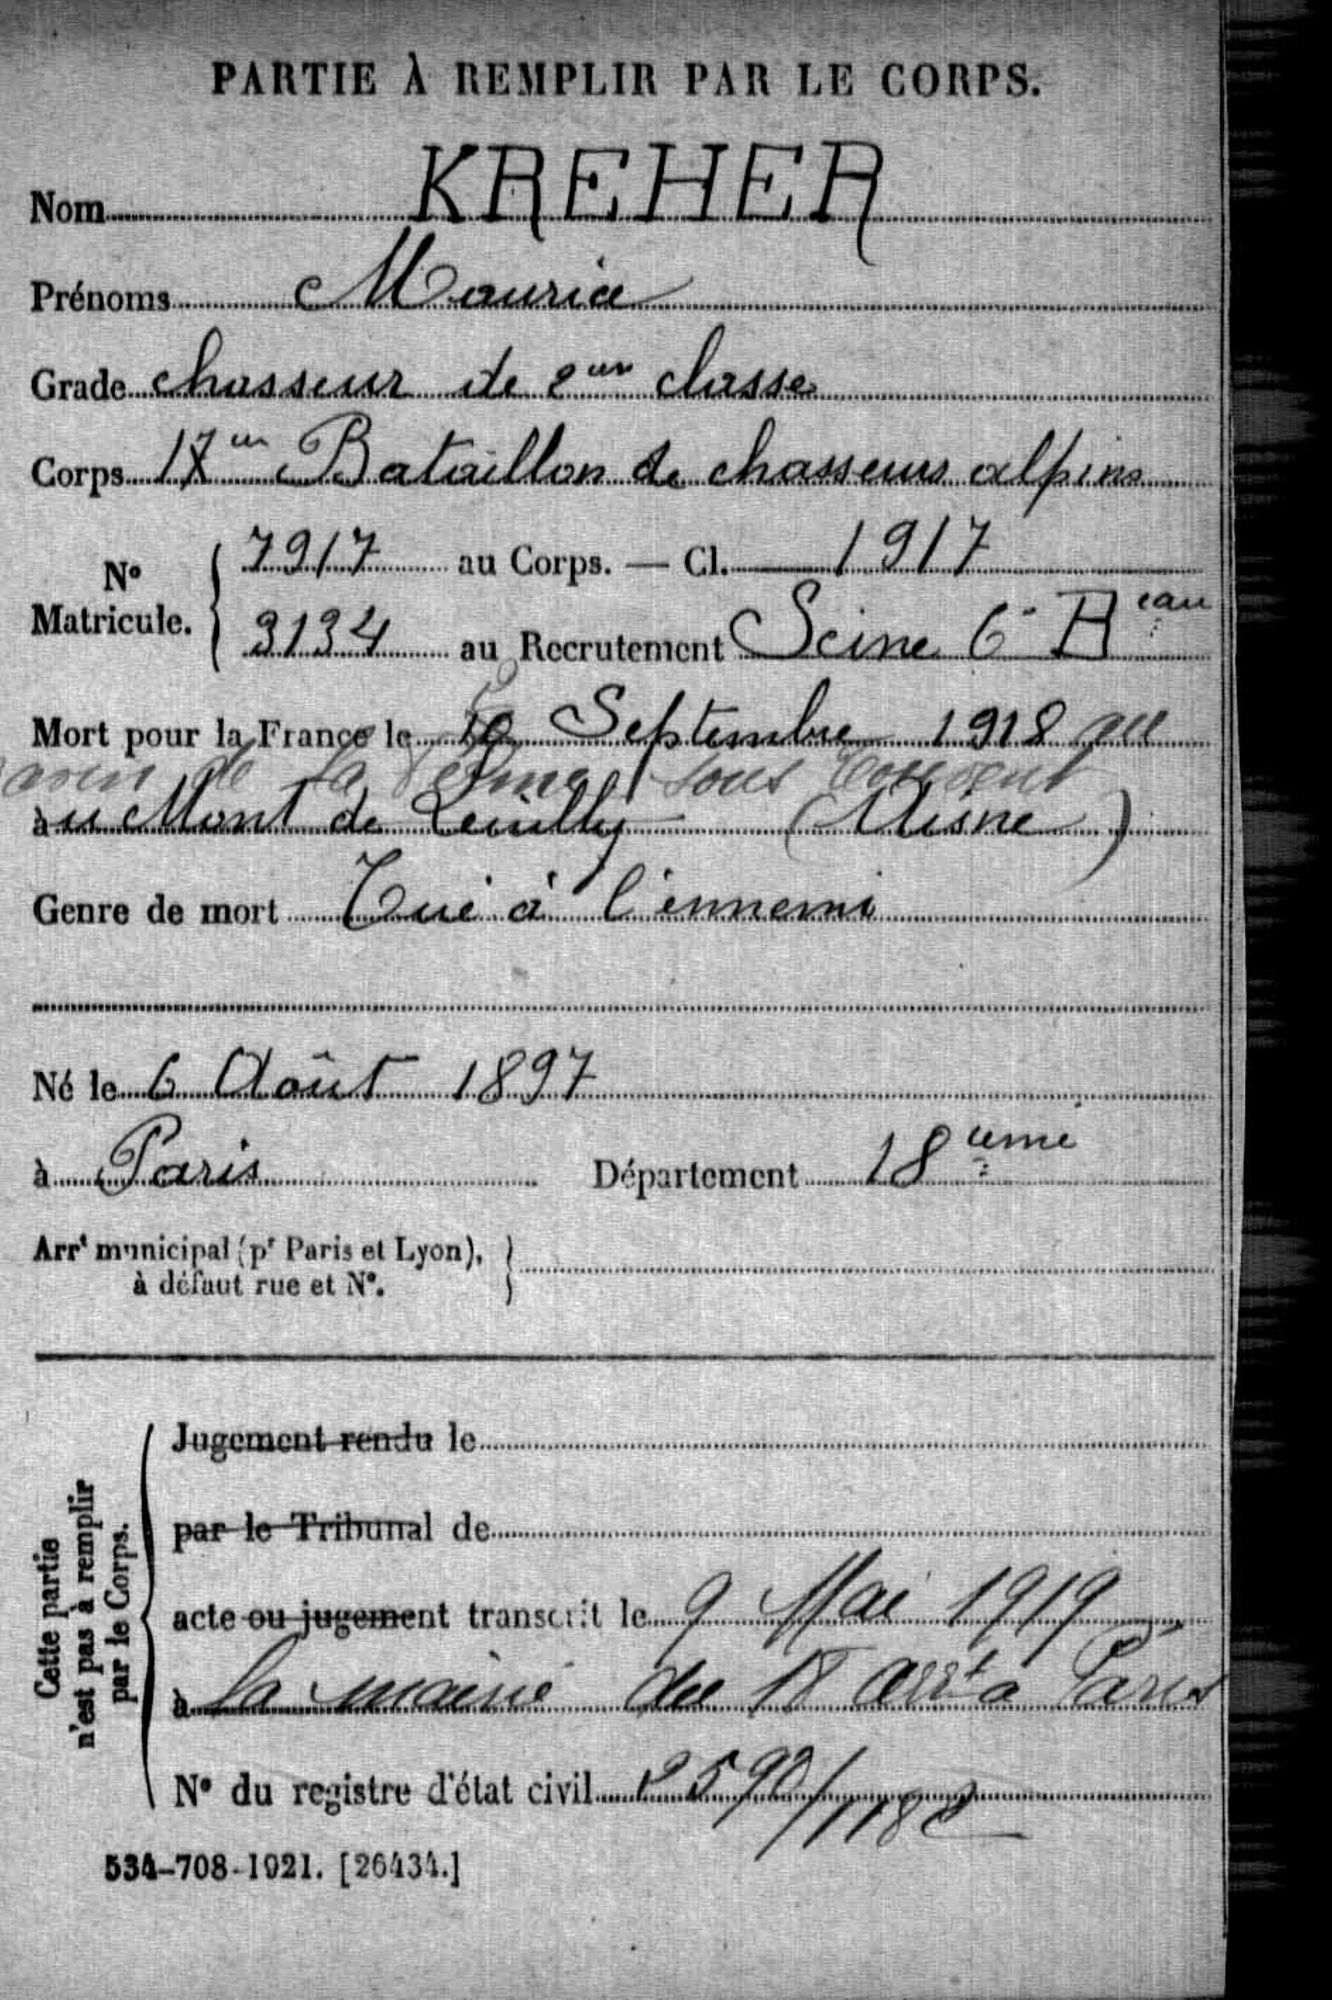 PARTIE À REMPLIR PAR LE CORPS.
Nom KREHER
Prénoms Maurice
Grade chasseur de 2eme classe
Corps 17em Bataillon de chasseurs alpins
N° Matricule. { 7917 au Corps. — Cl. 1917
3134 au Recrutement Seine 6e Beau
Mort pour la France le Septembre 1918 au
ravin de la sous
à u Mont de Leuilly (Aisne)
Genre de mort Tué à l'ennemi
Né le 6 Août 1897
à Paris Département 18eme
Arrt municipal (pr Paris et Lyon), }
à défaut rue et N°.
Cette partie n'est pas à remplir par le Corps. {
Jugement rendu le
par le Tribunal de
acte ou jugement transcrit le 9 Mai 1919
à la mairie du 18 arrt à Paris
N° du registre d'état civil 2590/1182
534-708-1921. [26434.]